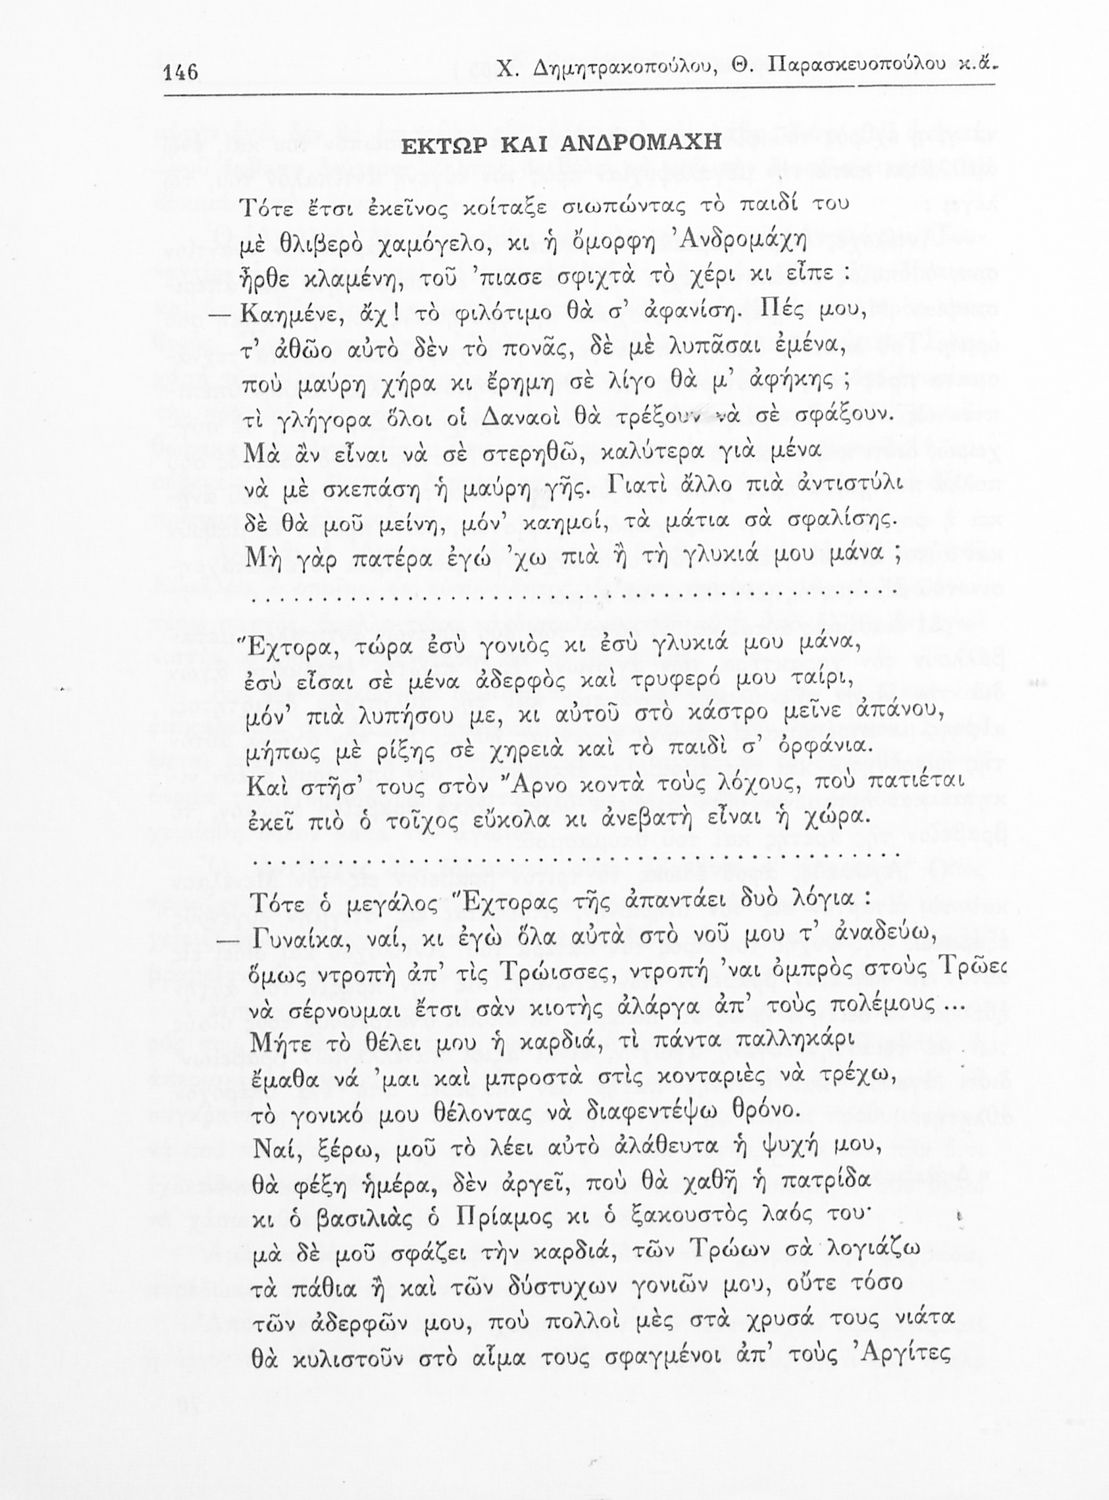 146 Χ. Δημητρακοπούλου, Θ. Παρασκευοπούλου κ.ἄ.
ΕΚΤΩΡ ΚΑΙ ΑΝΔΡΟΜΑΧΗ
Τότε ἔτσι ἐκεῖνος κοίταξε σιωπώντας τὸ παιδί του
μὲ θλιβερὸ χαμόγελο, κι ἡ ὄμορφη Ἀνδρομάχη
ἦρθε κλαμένη, τοῦ ᾿πιασε σφιχτὰ τὸ χέρι κι εἶπε :
— Καημένε, ἄχ! τὸ φιλότιμο θὰ σ᾿ ἀφανίση. Πές μου,
τ᾿ ἀθῶο αὐτὸ δὲν τὸ πονᾶς, δὲ μὲ λυπᾶσαι ἐμένα,
ποὺ μαύρη χήρα κι ἔρημη σὲ λίγο θὰ μ᾿ ἀφήκης ;
τὶ γλήγορα ὅλοι οἱ Δαναοὶ θὰ τρέξουν νὰ σὲ σφάξουν.
Μὰ ἂν εἶναι νὰ σὲ στερηθῶ, καλύτερα γιὰ μένα
νὰ μὲ σκεπάση ἡ μαύρη γῆς. Γιατὶ ἄλλο πιὰ ἀντιστύλι
δὲ θὰ μοῦ μείνη, μόν᾿ καημοί, τὰ μάτια σὰ σφαλίσης.
Μὴ γὰρ πατέρα ἐγώ ᾿χω πιὰ ἢ τὴ γλυκιά μου μάνα ;
. . . . . . . . . . . . . . . . . . . . . . . . . . . . . . . . . . . . . . . . . . . . . .
Ἕχτορα, τώρα ἐσὺ γονιὸς κι ἐσὺ γλυκιά μου μάνα,
ἐσὺ εἶσαι σὲ μένα ἀδερφὸς καὶ τρυφερό μου ταίρι,
μόν᾿ πιὰ λυπήσου με, κι αὐτοῦ στὸ κάστρο μεῖνε ἀπάνου,
μήπως μὲ ρίξης σὲ χηρειὰ καὶ τὸ παιδὶ σ᾿ ὀρφάνια.
Καὶ στῆσ᾿ τους στὸν Ἄρνο κοντὰ τοὺς λόχους, ποὺ πατιέται
ἐκεῖ πιὸ ὁ τοῖχος εὔκολα κι ἀνεβατὴ εἶναι ἡ χώρα.
. . . . . . . . . . . . . . . . . . . . . . . . . . . . . . . . . . . . . . . . . . . . . .
Τότε ὁ μεγάλος Ἕχτορας τῆς ἀπαντάει δυὸ λόγια :
— Γυναίκα, ναί, κι ἐγὼ ὅλα αὐτὰ στὸ νοῦ μου τ᾿ ἀναδεύω,
ὅμως ντροπὴ ἀπ᾿ τὶς Τρώισσες, ντροπή ᾿ναι ὀμπρὸς στοὺς Τρῶες
νὰ σέρνουμαι ἔτσι σὰν κιοτὴς ἀλάργα ἀπ᾿ τοὺς πολέμους ...
Μήτε τὸ θέλει μου ἡ καρδιά, τὶ πάντα παλληκάρι
ἔμαθα νά ᾿μαι καὶ μπροστὰ στὶς κονταριὲς νὰ τρέχω,
τὸ γονικό μου θέλοντας νὰ διαφεντέψω θρόνο.
Ναί, ξέρω, μοῦ τὸ λέει αὐτὸ ἀλάθευτα ἡ ψυχή μου,
θὰ φέξη ἡμέρα, δὲν ἀργεῖ, ποὺ θὰ χαθῆ ἡ πατρίδα
κι ὁ βασιλιὰς ὁ Πρίαμος κι ὁ ξακουστὸς λαός του·
μὰ δὲ μοῦ σφάζει τὴν καρδιά, τῶν Τρώων σὰ λογιάζω
τὰ πάθια ἢ καὶ τῶν δύστυχων γονιῶν μου, οὔτε τόσο
τῶν ἀδερφῶν μου, ποὺ πολλοὶ μὲς στὰ χρυσά τους νιάτα
θὰ κυλιστοῦν στὸ αἷμα τους σφαγμένοι ἀπ᾿ τοὺς Ἀργίτες